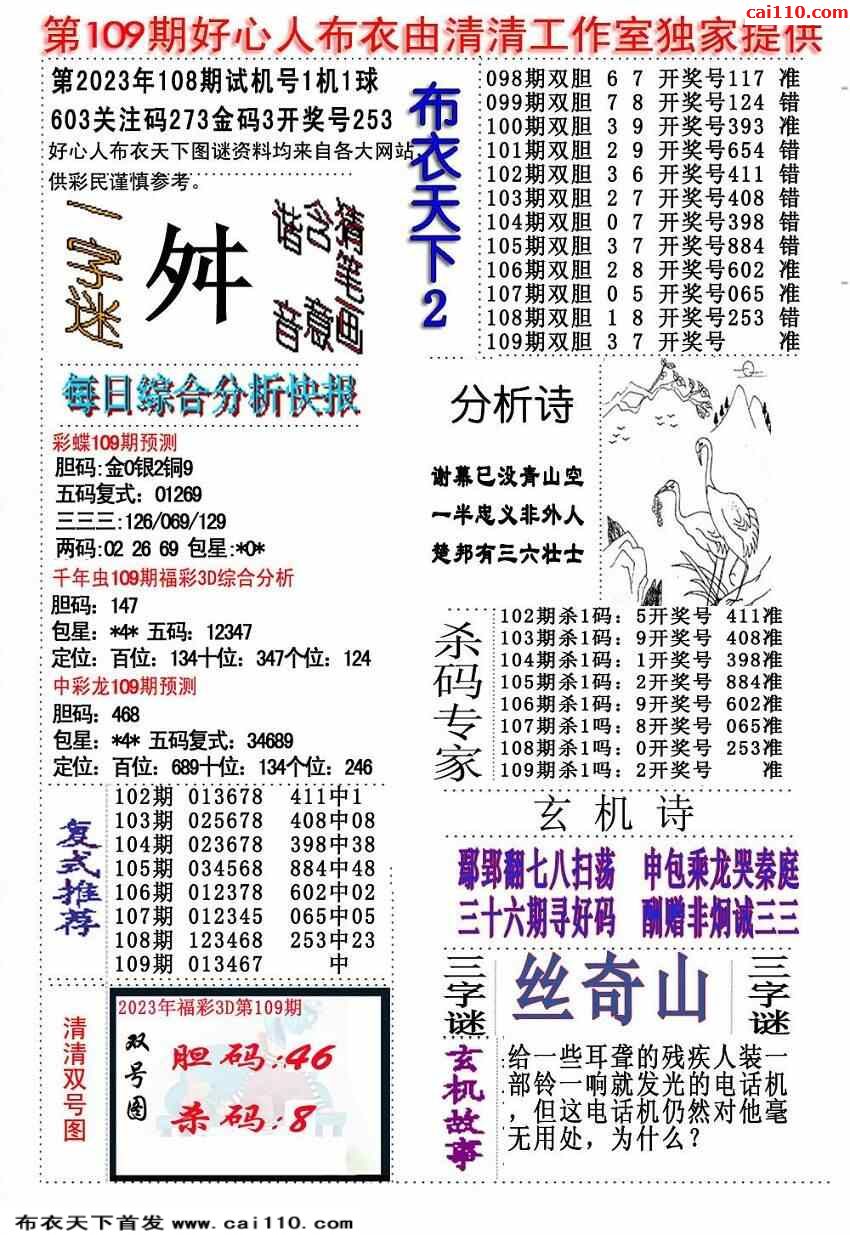 cai110.com
第109期好心人布衣由清清工作室独家提供
第2023年108期试机号1机1球
603关注码273金码3开奖号253
好心人布衣天下图谜资料均来自各大网站,
供彩民谨慎参考。
一字迷
舛
谐音
含意
猜笔画
布衣天下2
098期双胆 6 7 开奖号117 准
099期双胆 7 8 开奖号124 错
100期双胆 3 9 开奖号393 准
101期双胆 2 9 开奖号654 错
102期双胆 3 6 开奖号411 错
103期双胆 2 7 开奖号408 错
104期双胆 0 7 开奖号398 错
105期双胆 3 7 开奖号884 错
106期双胆 2 8 开奖号602 准
107期双胆 0 5 开奖号065 准
108期双胆 1 8 开奖号253 错
109期双胆 3 7 开奖号 准
每日综合分析快报
彩蝶109期预测
胆码:金0银2铜9
五码复式：01269
三三三:126/069/129
两码:02 26 69 包星:*0*
千年虫109期福彩3D综合分析
胆码：147
包星：*4* 五码：12347
定位：百位：134十位：347个位：124
中彩龙109期预测
胆码：468
包星：*4* 五码复式：34689
定位：百位：689十位：134个位：246
分析诗
谢幕已没青山空
一半忠义非外人
楚邦有三六壮士
杀码专家
102期杀1码：5开奖号 411准
103期杀1码：9开奖号 408准
104期杀1码：1开奖号 398准
105期杀1码：2开奖号 884准
106期杀1码：9开奖号 602准
107期杀1吗：8开奖号 065准
108期杀1吗：0开奖号 253准
109期杀1吗：2开奖号 准
复式推荐
102期 013678 411中1
103期 025678 408中08
104期 023678 398中38
105期 034568 884中48
106期 012378 602中02
107期 012345 065中05
108期 123468 253中23
109期 013467 中
玄机诗
鄢郢翻七八扫荡 申包乘龙哭秦庭
三十六期寻好码 酬赠非炯诫三三
三字谜
丝奇山
三字谜
清清双号图
2023年福彩3D第109期
双号图
胆码:46
杀码:8
玄机故事
给一些耳聋的残疾人装一
部铃一响就发光的电话机
，但这电话机仍然对他毫
无用处，为什么？
布衣天下首发 www.cai110.com